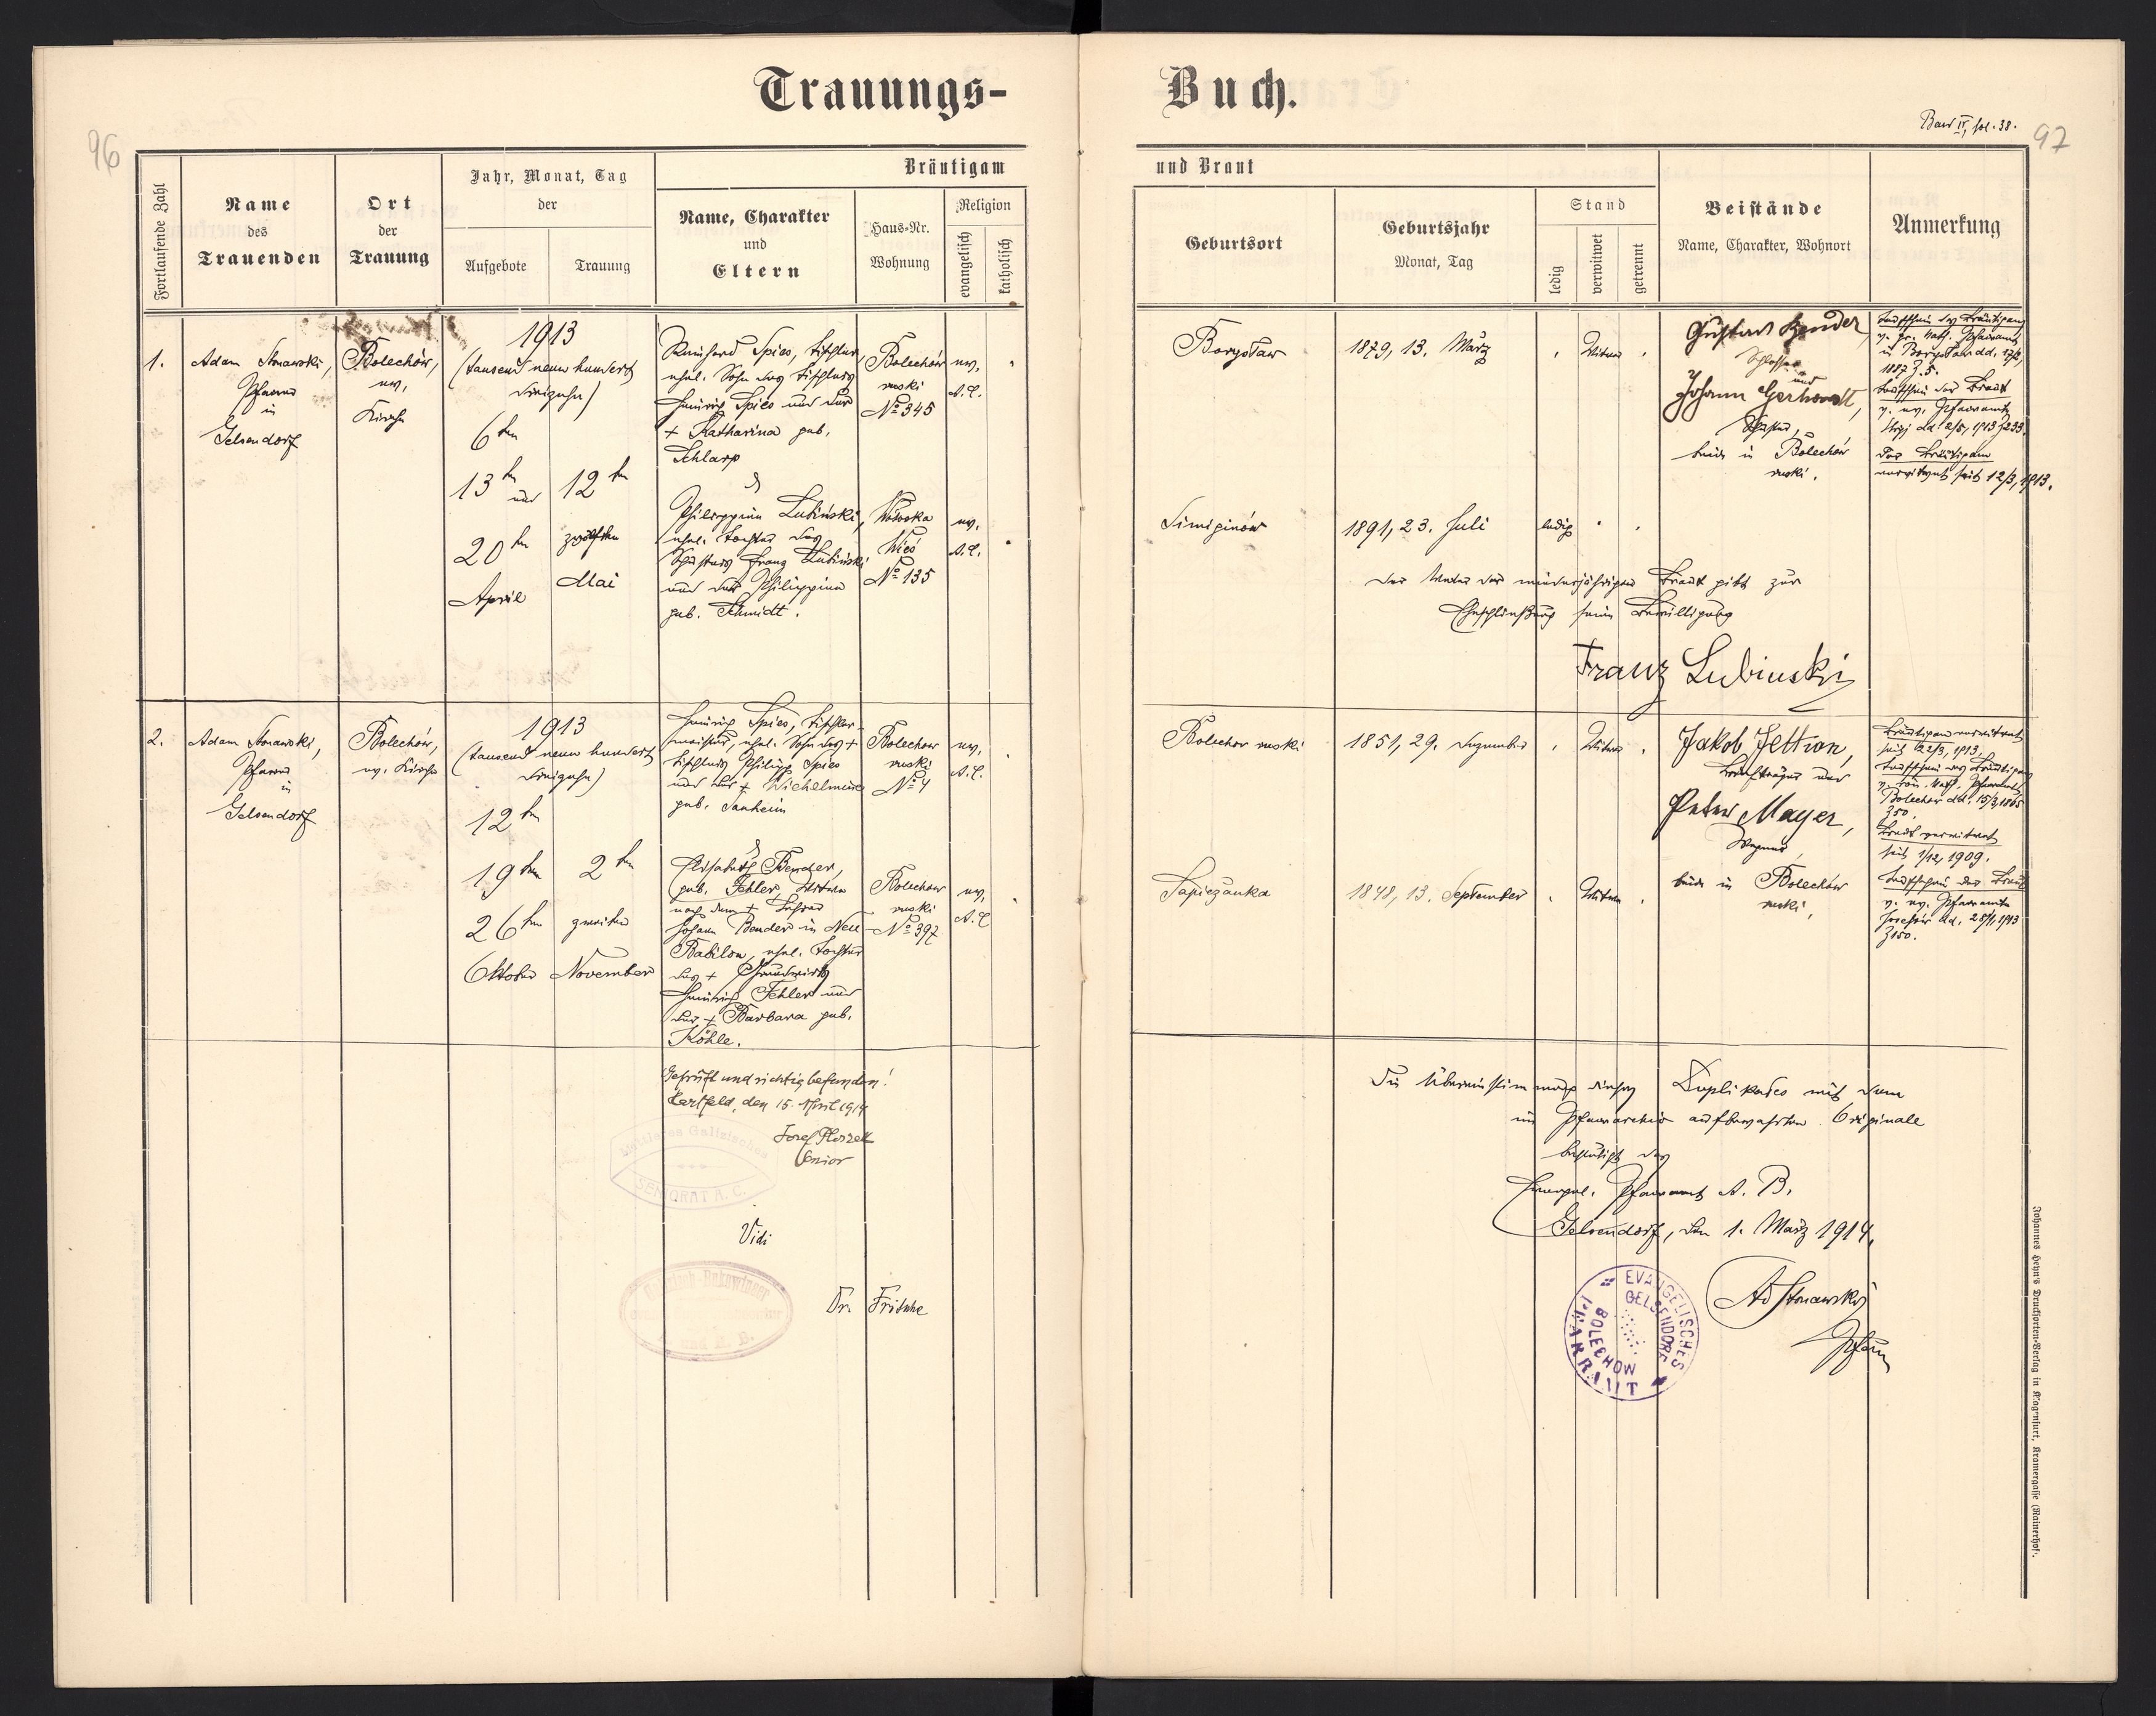 Trauungs-
Buch.
Band IV, fol. 38.
96
97
Fortlaufende Zahl
Name
des
Trauenden
Ort
der
Trauung
Jahr, Monat, Tag
der
Aufgebote
Trauung
Bräutigam
Name, Charakter
und
Eltern
Haus-Nr.
Wohnung
Religion
evangelisch
katholisch
und Braut
Geburtsort
Geburtsjahr
Monat, Tag
Stand
ledig
verwitwet
getrennt
Beistände
Name, Charakter, Wohnort
Anmerkung
1.
Adam Stonawski,
Pfarrer
in
Gelsendorf
Bolechów,
ev.
Kirche
1913
(tausend neun hundert
dreizehn)
6ten
13ten
und
20ten
April
12ten
zwölften
Mai
Reinhard Spies, Tischler,
ehel. Sohn des Tischlers
Heinrich Spies und der
+ Katharina geb.
Schlarp
&
Philippine Lubiński,
ehel. Tochter des
Schusters Franz Lubiński
und der Philippina
geb. Schmidt.
Bolechów
ruski
No 345
Wołoska
Wieś
No 135
ev.
A.C.
ev.
A.C.
Borysław
1879, 13. März
Witwer
Gustav Bender,
Schlosser
und
Johann Gerhardt,
Schuster,
beide in Bolechów
ruski.
Taufschein des Bräutigams
v. gr. kath. Pfarramt
in Borysław dd.
1887 Z. 5.
Taufschein der Braut
v. ev. Pfarramte
Stryj dd. 2/5, 1913 Z 233.
Der Bräutigam
verwitwet seit 12/3, 1913.
Simiginów
1891, 23. Juli
ledig
Der Vater der minderjährigen Braut gibt zur
Eheschließung seine Bewilligung
Franz Lubinski
2.
Adam Stonawski,
Pfarrer
in
Gelsendorf
Bolechów,
ev. Kirche
1913
(tausend neun hundert
dreizehn)
12ten
19ten
26ten
Oktober
2ten
zweiten
November
Heinrich Spies, Tischler-
meister, ehel. Sohn des +
Tischlers Philipp Spies
und der + Wilhelmine
geb. Tanheim
&
Elisabeth Bender,
geb. Fehler, Witwe
nach dem + Lehrer
Johann Bender in Neu-
Babilon, ehel. Tochter
des + Grundwirths
Heinrich Fehler und
der + Barbara geb.
Köhle.
Bolechow
ruski
No 4
Bolechow
ruski
No 397
ev.
A.C.
ev.
A.C.
Bolechow ruski
1851, 29. Dezember
Witwer
Jakob Jettion,
Briefträger und
Peter Mayer,
Wagner,
beide in Bolechów
ruski,
Bräutigam verwitwet
seit 22/3, 1913.
Taufschein des Bräutigams
v. röm. kath. Pfarramt
Bolechow dd. 15/3, 1865
Z 50.
Braut verwitwet
seit 1/12, 1909.
Taufschein der Braut
v. ev. Pfarramte
Josefów dd. 28/1, 1913
Z 150.
Sapieżanka
1848, 13. September
Witwe
Geprüft und richtig befunden!
Hartfeld, den 15. April 1914
Josef Ploszek
Senior
Mittleres Galizisches
SENIORAT A. C.
Vidi
Dr. Fritsche
Die Übereinstimmung dieses Duplikates mit dem
im Pfarrarchiv aufbewahrten Originale
bestätigt das
Evangel. Pfarramt A. B.
Gelsendorf, den 1. März 1914.
Ad Stonawski
Pfarrer
EVANGELISCHES
PFARRAMT
GELSENDORF
BOLECHOW
Johannes Heyn's Drucksorten-Verlag in Klagenfurt, Kramergasse (Rainerhof).